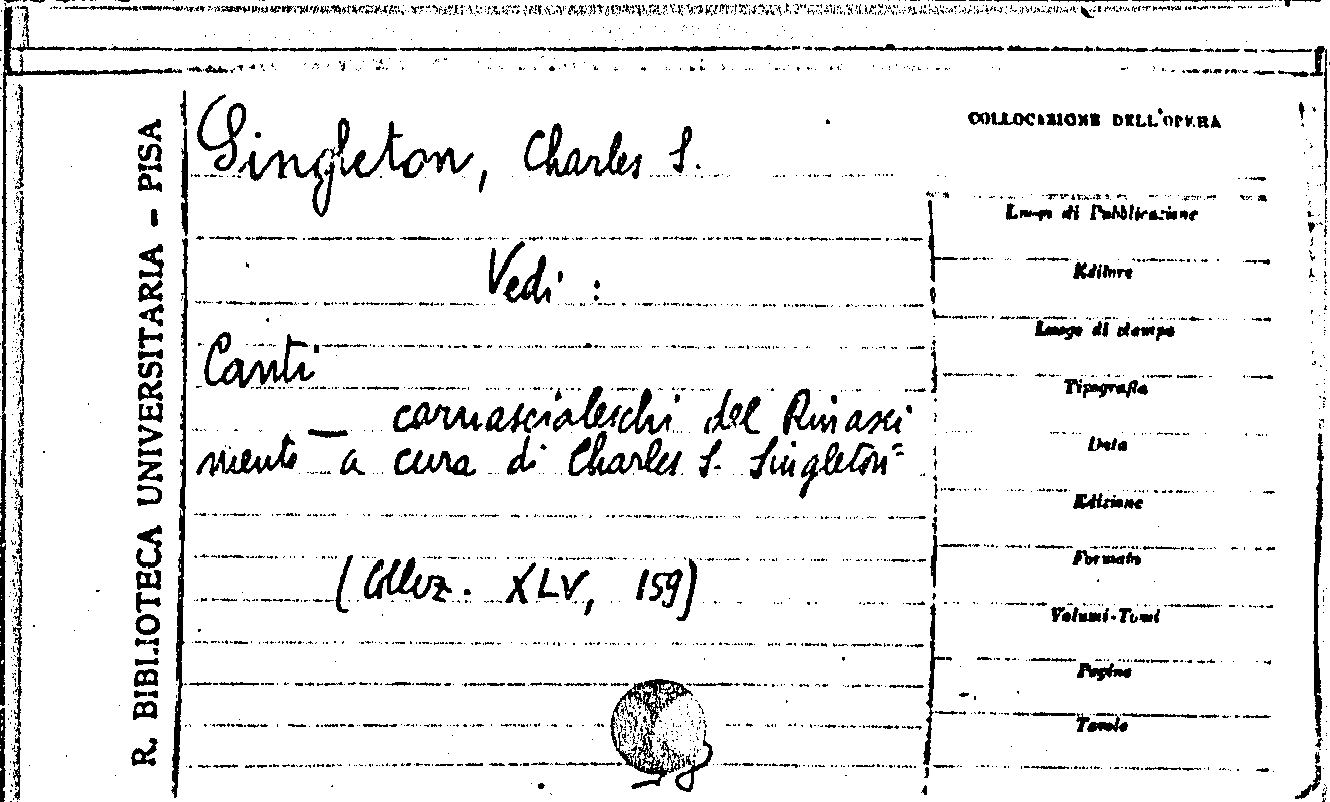 R. BIBLIOTECA UNIVERSITARIA - PISA
Singleton, Charles S.
Vedi :
Canti
— carnascialeschi del Rinasci
mento a cura di Charles S. Singleton =
(Colloz. XLV, 159)
COLLOCAZIONE DELL'OPERA
Luogo di Pubblicazione
Editore
Luogo di stampa
Tipografia
Data
Edizione
Formato
Volumi-Tomi
Pagine
Tavole